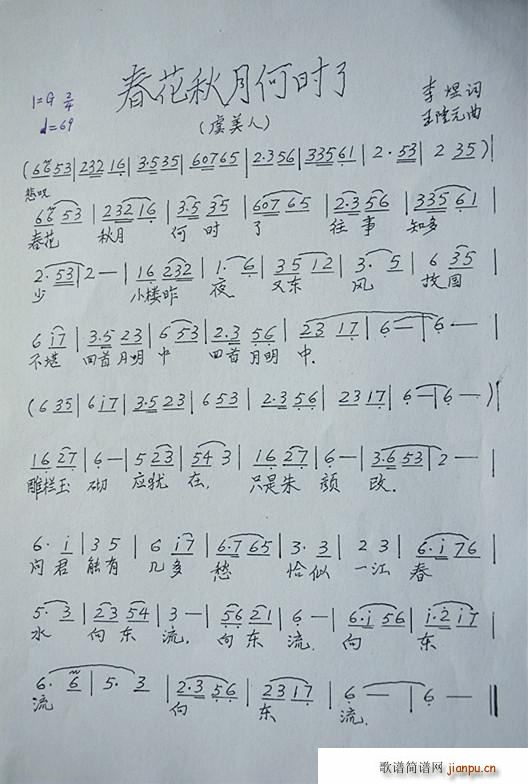 春花秋月何时了
(虞美人)
1=G 2/4
♩=69
李煜词
王隆元曲
(6653|232 16|3·5 35|607 65|2·3 56|335 61|2·53|2 35)|
悲叹
66 53|232 16|3·5 35|607 65|2·3 56|335 61|
春花 秋月 何时 了 往事 知多
2·53|2—|16 232|1·6|35 12|3·5|6 35|
少 小楼昨 夜 又东 风 故国
6 i7|3·5 23|6 53|2·3 56|23 17|6—|6—|
不堪 回首月明 中 回首月明 中.
(6 35|6 i7|3·5 23|6 53|2·3 56|23 17|6—|6—)|
16 27|6—|5 23|54 3|16 27|6—|3·6 53|2—|
雕栏玉 砌 应犹 在, 只是朱 颜 改.
6·i|3 5|6 i7|6·7 65|3·3|2 3|6·i 76|
问君 能有 几多 愁 恰似 一江 春
5·3|23 54|3—|56 21|6—|6·i 56|i·2 i7|
水 向东 流, 向东 流. 向 东
6·6|5·3|2·3 56|23 17|6—|6—‖
流 向 东 流.
歌谱简谱网
jianpu.cn